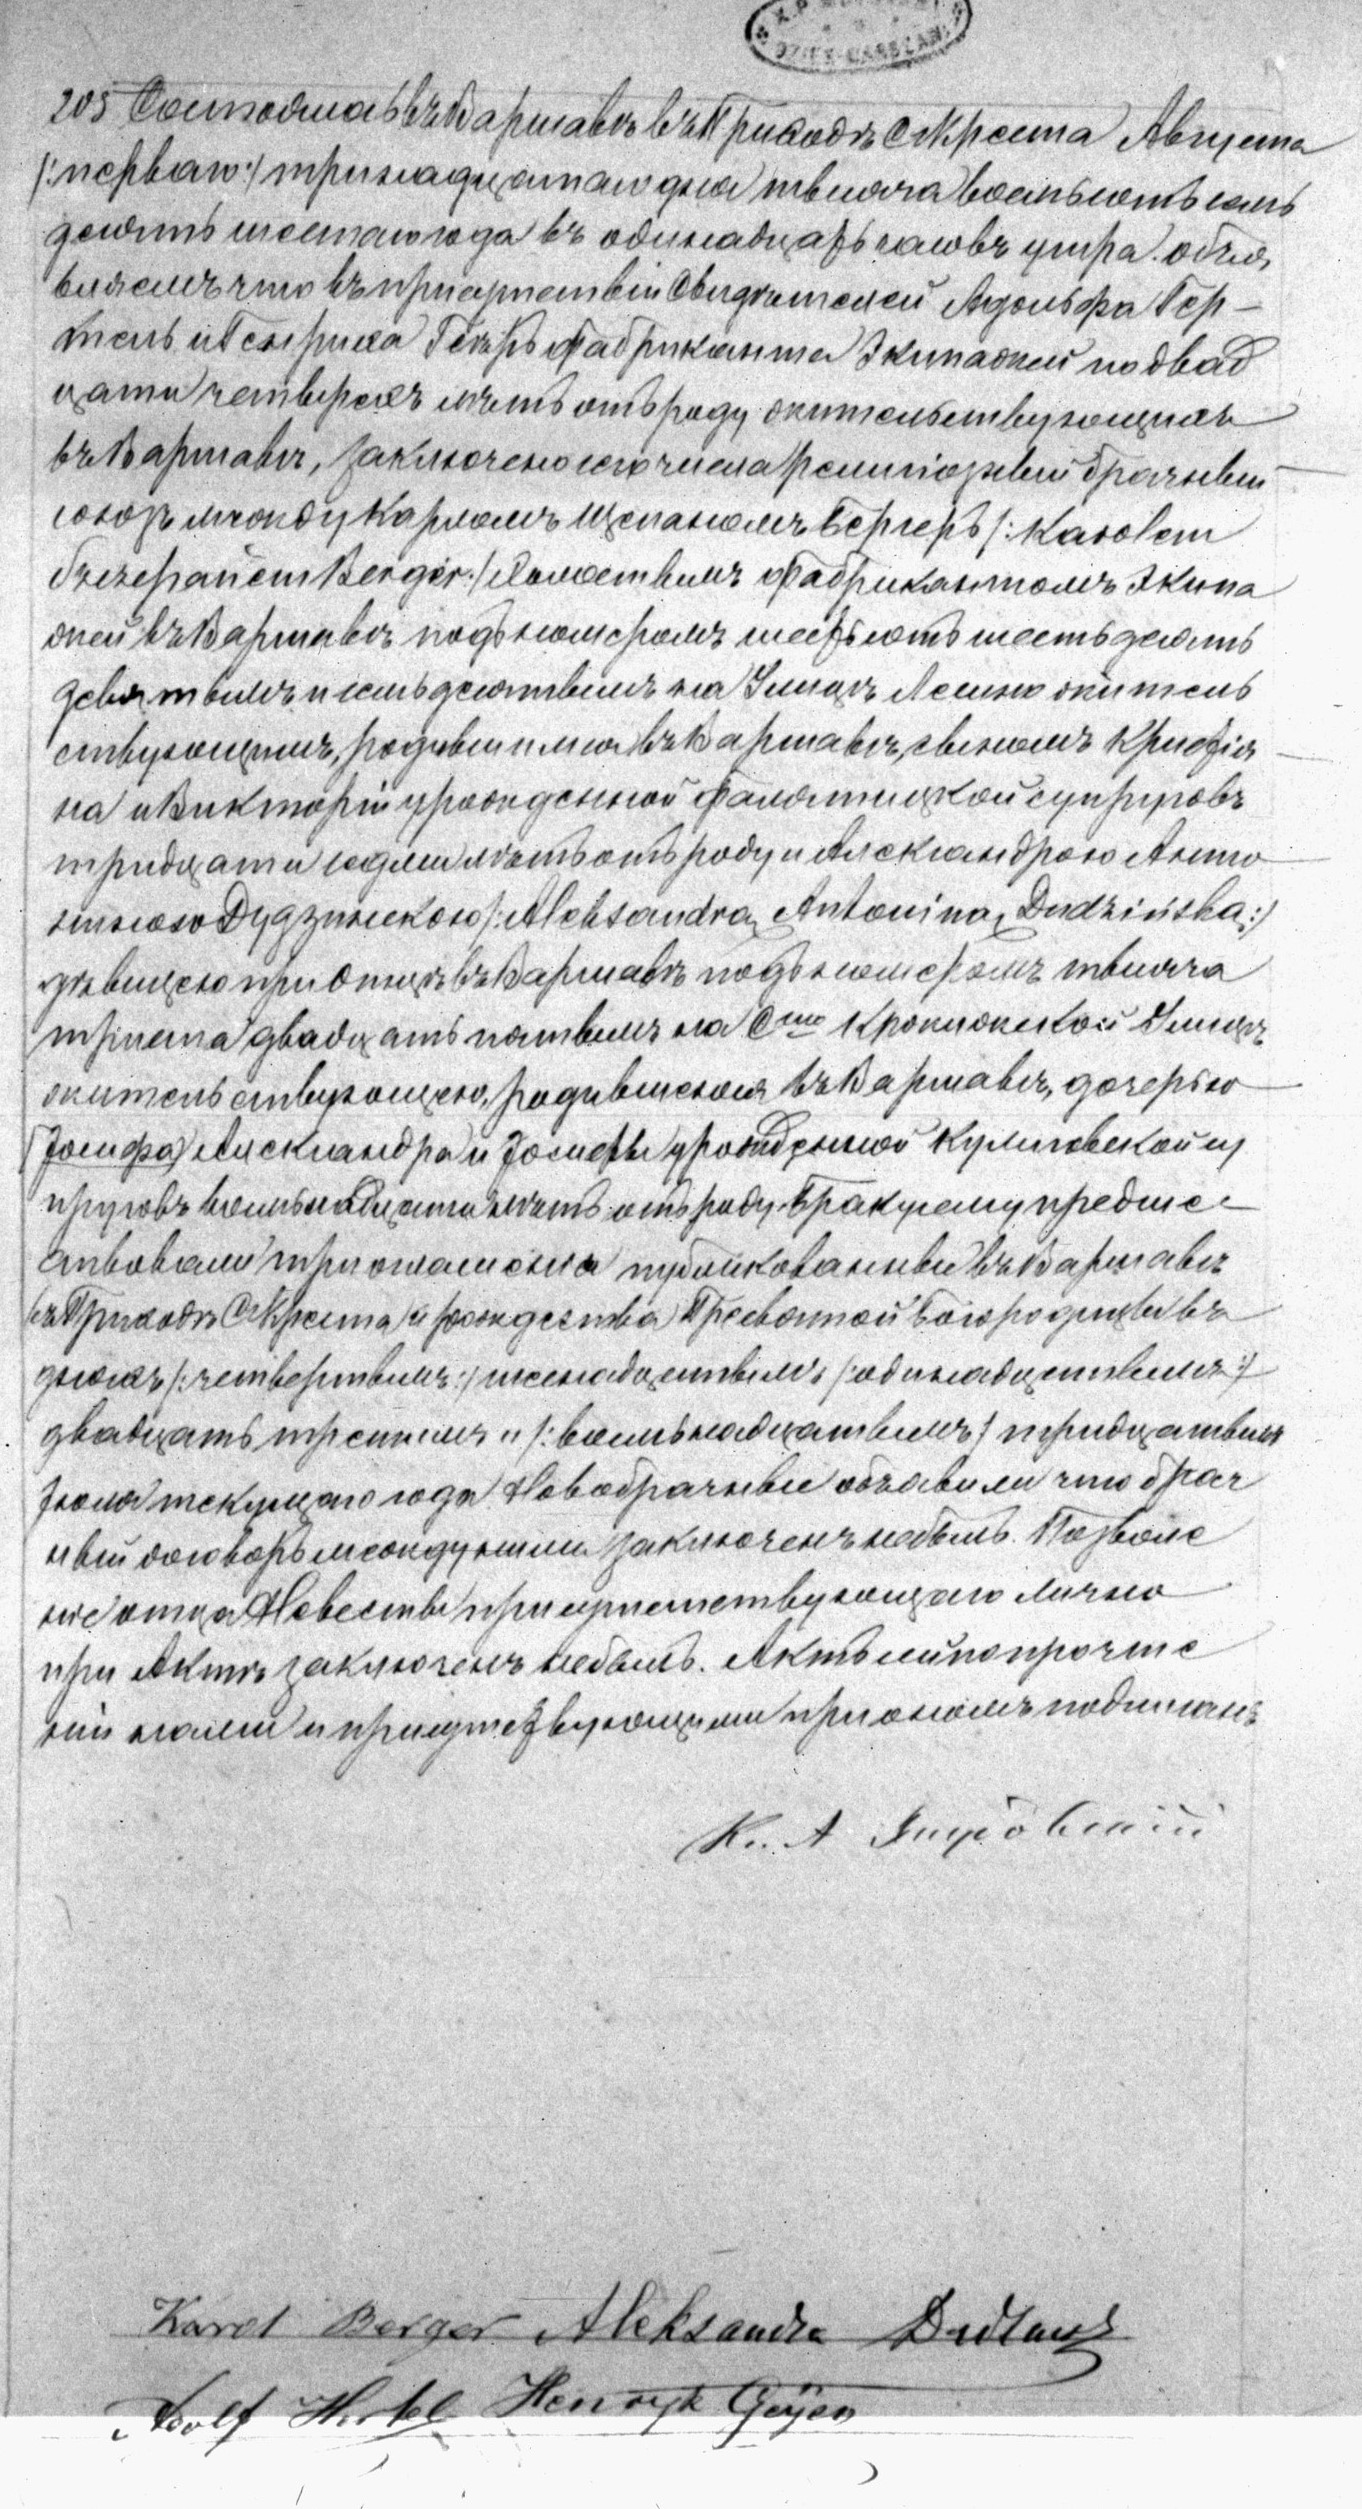 205 Состоялась въ Варшавѣ въ Приходѣ С Креста Августа
/:перваго:/ тринадцатаго дня тысяча восемьсотъ семь
десятъ шестаго года въ одинадцать часовъ утра. объя
вляемъ что въ присутствіи Свидѣтелей Адольфа Гер-
тель и Генриха Фабриканта Экипажей по двад
цати четырехъ лѣтъ отъ роду жительствующихъ
въ Варшавѣ, заключенъ сего числа религіозный брачный
союзъ между Карломъ Щепаномъ Бергеръ /: Karolem
Szczepanem Berger:/ Холостымъ Фабрикантомъ Экипа
жей въ Варшавѣ подъ номеромъ шестьсотъ шестьдесятъ
девятымъ и семьдесятымъ на Улицѣ Лешно житель
ствующимъ, родившимся въ Варшавѣ, сыномъ Кристія
на и Викторіи урожденной супруговъ
тридцати лѣтъ отъ роду и Александрою Анто
ниною Дудзинскою /: Aleksandrą Antoniną Dudzińską:/
дѣвицею при Отцѣ въ Варшавѣ подъ номеромъ тысяча
триста двадцать пятымъ на С<sup>то</sup> Крокижской Улицѣ
жительствующею, родившеюся въ Варшавѣ, дочерью
Іосифа Александра и Іозефы урожденной Куликовской су
пруговъ восемьнадцати лѣтъ отъ роду. Браку сему предше
ствовали три оглашенія публикованные въ Варшавѣ
въ Приходѣ С Креста и рождества Пресвятой Богородицы въ
дняхъ /: четвертымъ:/ шеснадцатымъ /: одинадцатымъ:/
двадцать третьимъ и /: восемьнадцатымъ:/ тридцатымъ
Іюля текущаго года Новобрачные объявили что брач
ный договоръ между ними заключенъ небылъ. Позволе
ніе отца Невесты присутствующаго лично
при Актѣ заключенъ небылъ. Актъ сей по прочте
ніи нами и присутствующими при ономъ подписанъ
К. А
Karol Berger Aleksandra
Adolf Hertel Henryk